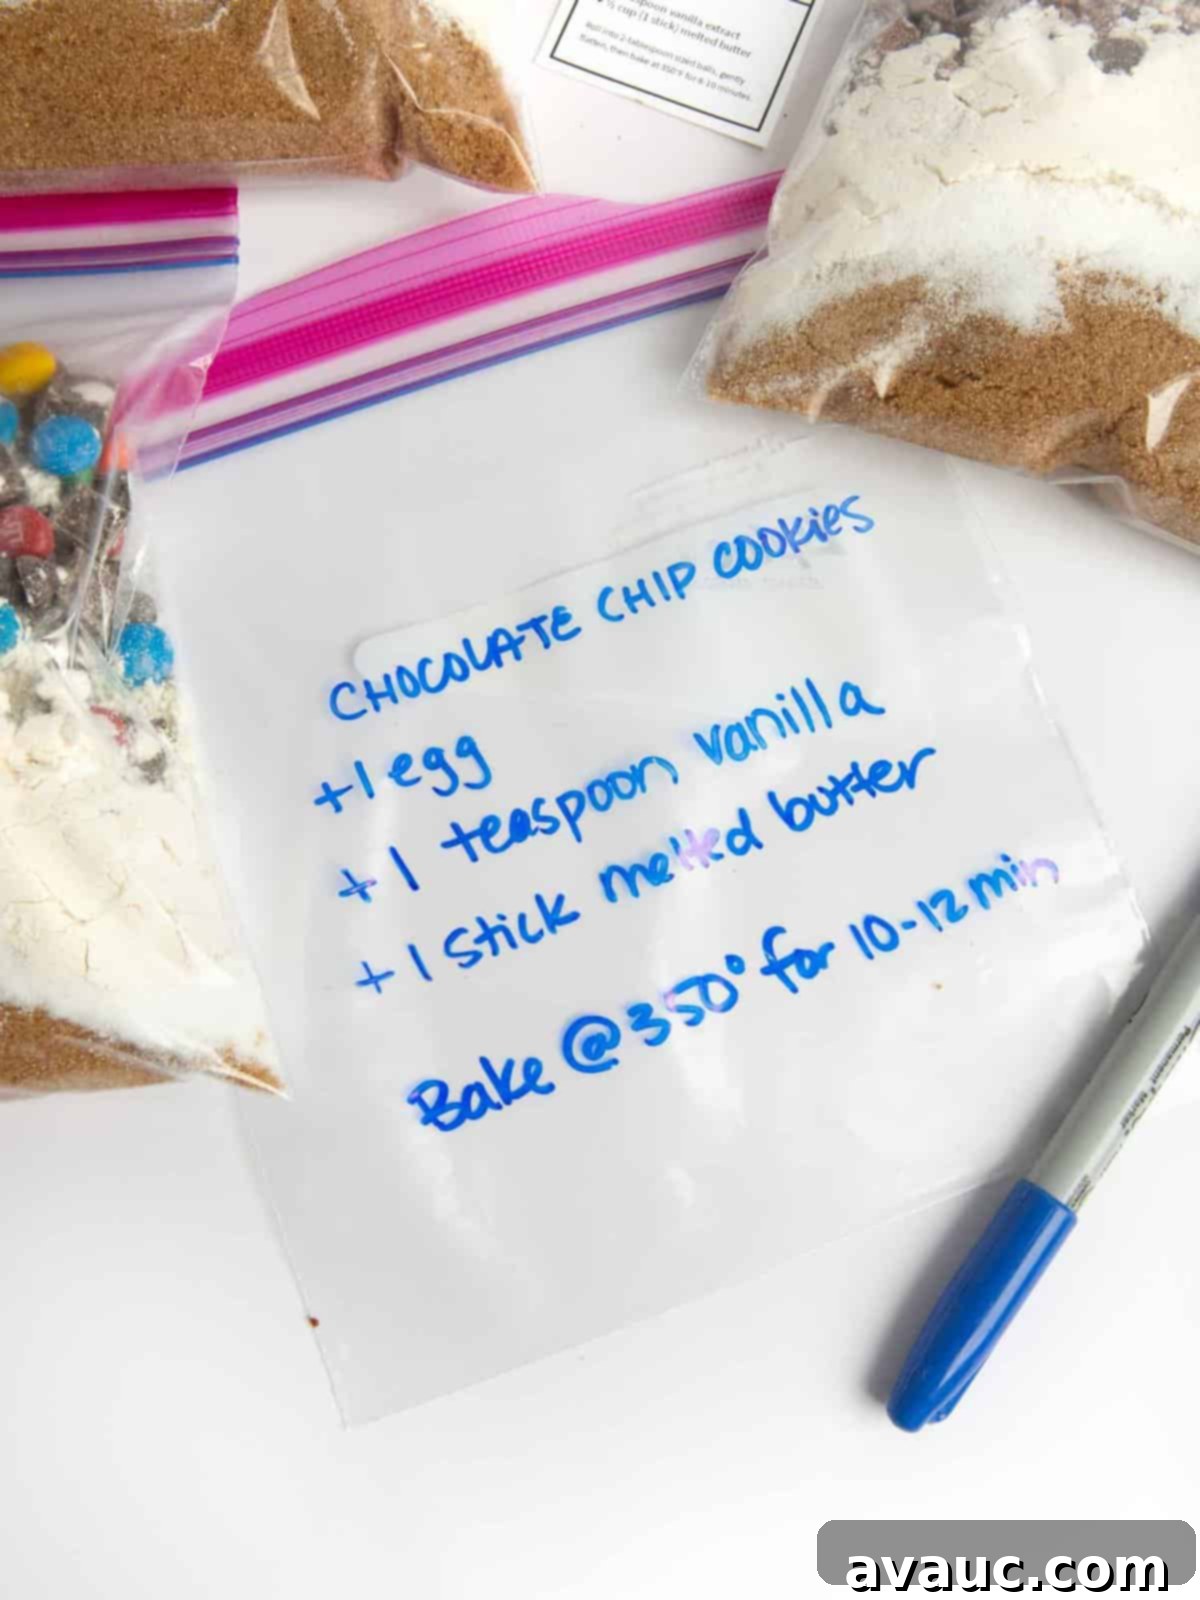 spoon vanilla extract
½ cup (1 stick) melted butter
Roll into 2-tablespoon sized balls, gently
flatten, then bake at 350°F for 8-10 minutes.
CHOCOLATE CHIP COOKIES
+1 egg
+1 teaspoon vanilla
+1 stick melted butter
Bake @ 350° for 10-12 min
avauc.com